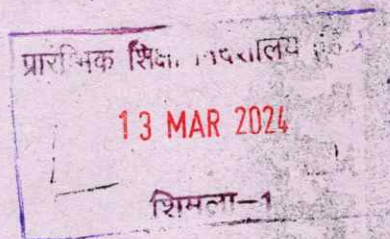 प्रारम्भिक शिक्षा निदेशालय
13 MAR 2024
शिमला-1